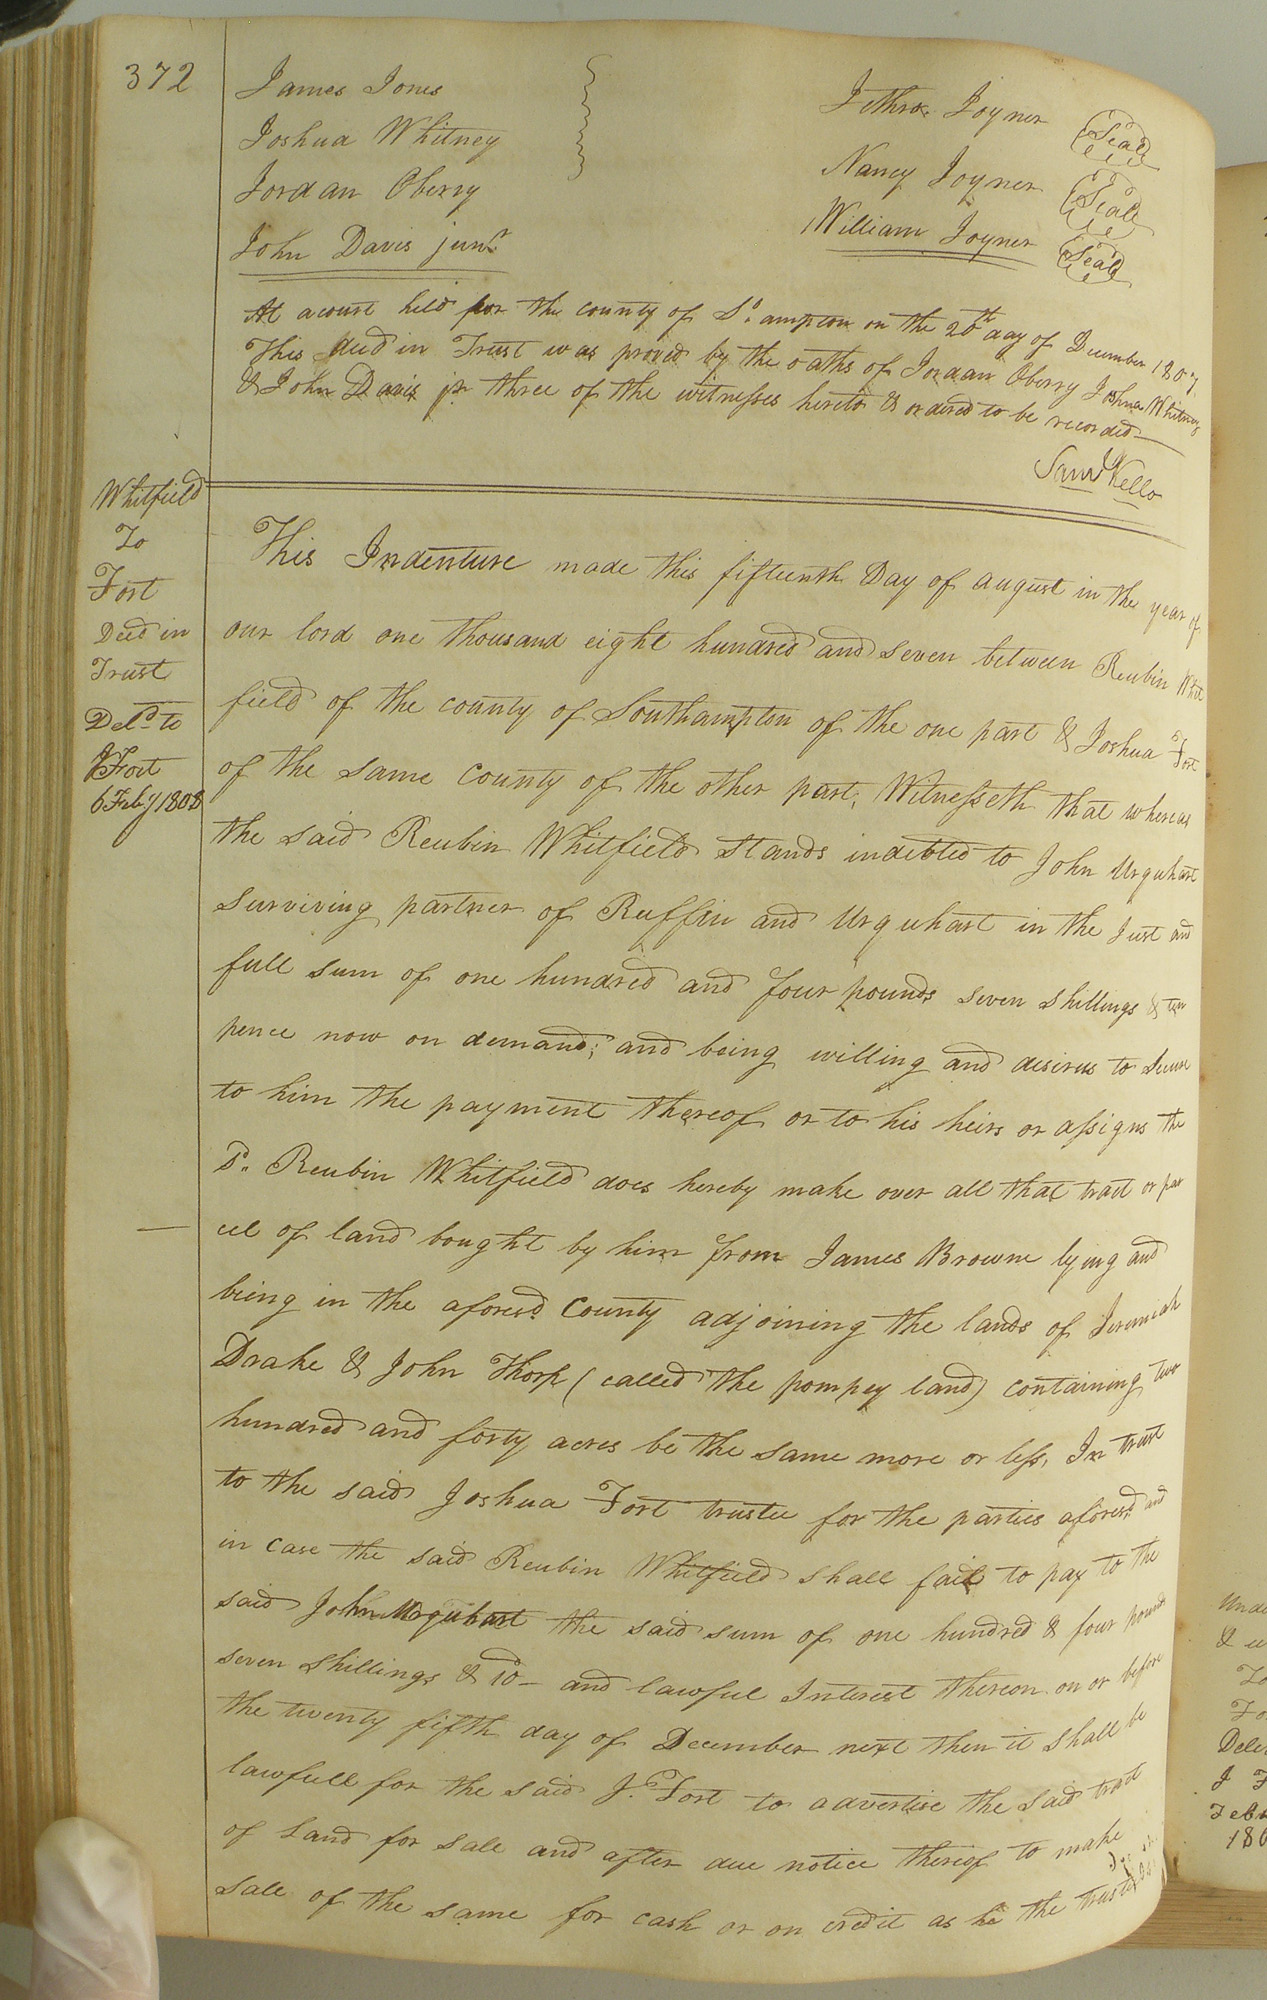 372
James Jones
Joshua Whitney
Jordan Oberry
John Davis junr.
Jethro Joyner Seal
Nancy Joyner Seal
William Joyner Seal
At a court held for the county of So.ampton on the 20th day of December 1807.
This deed in Trust was proved by the oaths of Jordan Oberry Joshua Whitney
& John Davis jr three of the witnesses hereto & ordered to be recorded—
Saml Kello
Whitfield
To
Fort
Deed in
Trust
Deld. to
J Fort
6 Feby 1808
This Indenture made this fifteenth Day of august in the year of
our lord one thousand eight hundred and seven between Reubin Whit
field of the county of Southampton of the one part & Joshua Fort
of the same County of the other part, Witnesseth that whereas
the said Reubin Whitfield Stands indebted to John Urquhart
surviving partner of Ruffin and Urquhart in the Just and
full sum of one hundred and four pounds seven shillings & ten
pence now on demand; and being willing and desirus to Secure
to him the payment thereof or to his heirs or assigns the
Sd. Reubin Whitfield does hereby make over all that tract or par
cel of land bought by him from James Browne lying and
being in the aforesd. County adjoining the lands of Jeremiah
Drake & John Thorp (called the pompey land) containing two
hundred and forty acres be the same more or less, In trust
to the said Joshua Fort trustee for the parties aforesd. and
in case the said Reubin Whitfield shall fail to pay to the
said John Urquhart the said sum of one hundred & four pounds
seven shillings & 10d— and lawful Interest thereon on or before
the twenty fifth day of December next then it shall be
lawfull for the said J. Fort to advertise the said tract
of Land for sale and after due notice thereof to make
sale of the same for cash or on credit as he the trustee
Unde
Dele
Febr